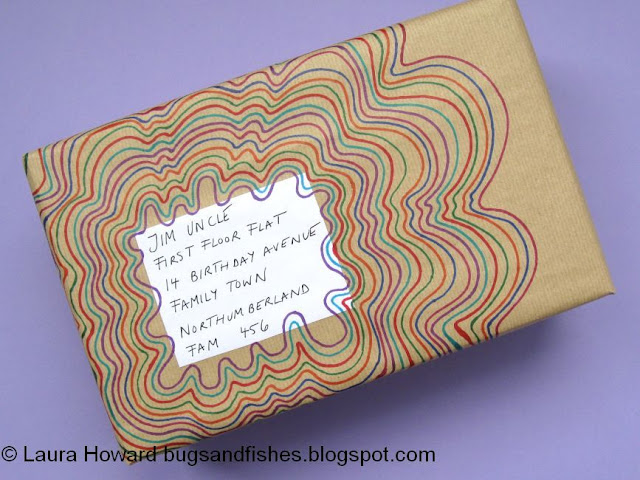 JIM UNCLE
FIRST FLOOR FLAT
14 BIRTHDAY AVENUE
FAMILY TOWN
NORTHUMBERLAND
FAM 456
© Laura Howard bugsandfishes.blogspot.com